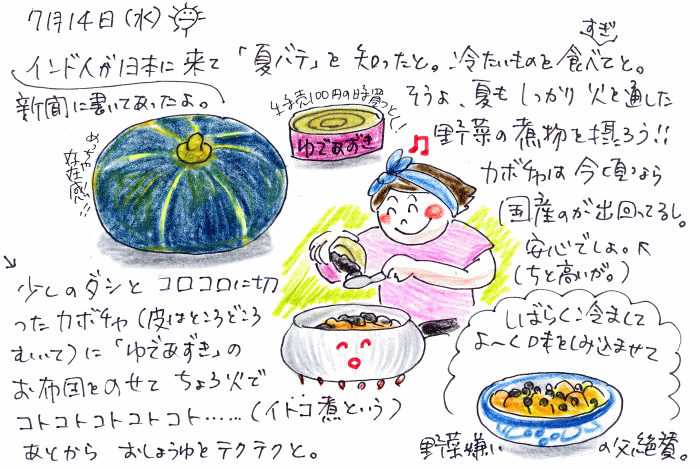 7月14日(水)
インド人が日本に来て「夏バテ」を知ったと。冷たいものを食べてと。
すぎ
新聞に書いてあったよ。
特売100円の時買っとく!
そうよ、夏もしっかり火を通した
野菜の煮物を摂ろう!!
ゆであずき
めっちゃ
存在感!!
カボチャは今頃なら
国産のが出回ってるし。
安心でしょ。
(ちと高いが。)
少しのダシとコロコロに切
ったカボチャ(皮はところどころ
むいて)に「ゆであずき」の
お布団をのせてちょろ火で
コトコトコトコトコト……(イトコ煮という)
あとからおしょうゆとテクテクと。
しばらく冷まして
よ〜く味をしみ込ませて
野菜嫌いの父絶賛。